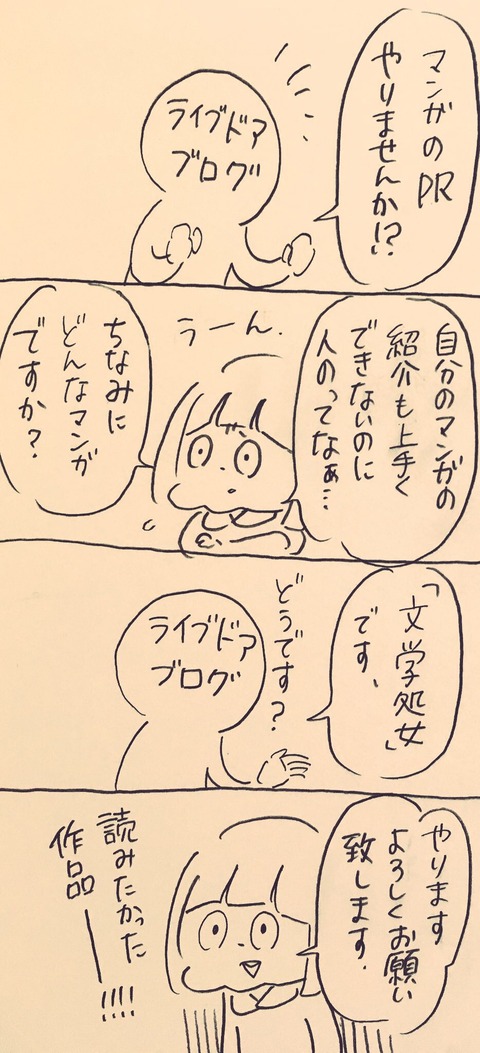 マンガのPR
やりませんか!?
ライブドア
ブログ
自分のマンガの
紹介も上手く
できないのに
人のってなぁ…
うーん.
ちなみに
どんなマンガ
ですか?
「文学処女」
です、
どうです?
ライブドア
ブログ
やります
よろしくお願い
致します.
読みたかった
作品ー!!!!